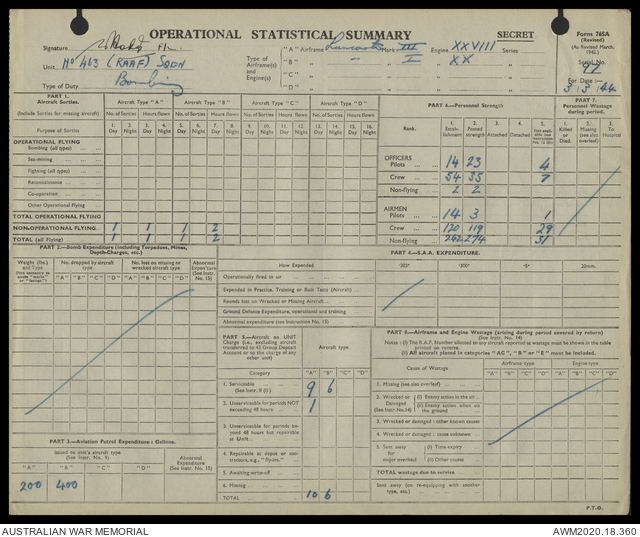 OPERATIONAL STATISTICAL SUMMARY
SECRET
Form 765A
(Revised)
(As Revised March, 1943.)
Serial No. 97
For Date :—
3 3 44
Signature F/L.
Unit No 463 (RAAF) SQDN
Type of Duty Bombing
Type of Airframe(s) and Engine(s)
"A" Airframe Lancaster Mark III Engine XXVIII Series
"B" — I XX
"C"
"D"
PART 1.
Aircraft Sorties.
(Include Sorties for missing aircraft)
Aircraft Type "A" Aircraft Type "B" Aircraft Type "C" Aircraft Type "D"
No. of Sorties Hours flown No. of Sorties Hours flown No. of Sorties Hours flown No. of Sorties Hours flown
Purpose of Sorties
1. Day 2. Night 3. Day 4. Night 5. Day 6. Night 7. Day 8. Night 9. Day 10. Night 11. Day 12. Night 13. Day 14. Night 15. Day 16. Night
OPERATIONAL FLYING
Bombing (all types)
Sea-mining
Fighting (all types)
Reconnaissance
Co-operation
Other Operational Flying
TOTAL OPERATIONAL FLYING
NON-OPERATIONAL FLYING 1 1 1 2
TOTAL (all Flying) 1 1 1 2
PART 6.—Personnel Strength
PART 7.
Personnel Wastage during period.
Rank.
1. Establishment 2. Posted strength 3. Attached 4. Detached 5.
1. Killed or Died. 2. Missing (see also overleaf) 3. To Hospital
OFFICERS
Pilots 14 23 4
Crew 54 35 7
Non-flying 2 2
AIRMEN
Pilots 14 3 1
Crew 120 119 29
Non-flying 242 274 31
PART 2.—Bomb Expenditure (including Torpedoes, Mines, Depth-Charges, etc.)
Weight (lbs.) and Type
No. dropped by aircraft type
No. loss on missing or wrecked aircraft type
Abnormal Expen'ture (See Instr. No. 15)
"A" "B" "C" "D" "A" "B" "C" "D"
PART 4.—S.A.A. EXPENDITURE.
How Expended ·303" ·300" ·5" 20mm.
Operationally fired in air
Expended in Practice, Training or Butt Tests (Aircraft)
Rounds loss on Wrecked or Missing Aircraft
Ground Defence Expenditure, operational and training
Abnormal expenditure (see Instruction No. 15)
PART 5.—Aircraft on UNIT Charge (i.e., excluding aircraft transferred to 43 Group Deposit Account or up the charge of any other unit)
Aircraft type
Category "A" "B" "C" "D"
1. Serviceable (See Instr. 8 (i) ) 9 6
2. Unserviceable for periods NOT exceeding 48 hours 1
3. Unserviceable for periods beyond 48 hours but repairable at Unit
4. Repairable at depot or contractors, e.g., "fly-ins."
5. Awaiting write-off
6. Missing
TOTAL 10 6
PART 8.—Airframe and Engine Wastage (arising during period covered by return)
(See Instr. No. 14)
Notes : (i) The R.A.F. Number allotted to any aircraft reported as wastage must be shown in the table printed on reverse.
(ii) All aircraft placed in categories "AC", "B" or "E" must be included.
Cause of Wastage
Airframe type Engine type
"A" "B" "C" "D" "A" "B" "C" "D"
1. Missing (see also overleaf)
2. Wrecked or Damaged (See Instr. No.14)
(i) Enemy action in the air
(ii) Enemy action when on the ground
3. Wrecked or damaged : other known causes
4. Wrecked or damaged : cause unknown
5. Sent away for major overhaul
(i) Time expiry
(ii) Other causes
TOTAL wastage due to service
Sent away (on re-equipping with another type, etc.)
PART 3.—Aviation Petrol Expenditure : Gallons.
Issued to unit's aircraft type
(See Instr. No. 9)
Abnormal Expenditure (See Instr. No. 15)
"A" "B" "C" "D"
200 400
P.T.O.
AUSTRALIAN WAR MEMORIAL
AWM2020.18.360